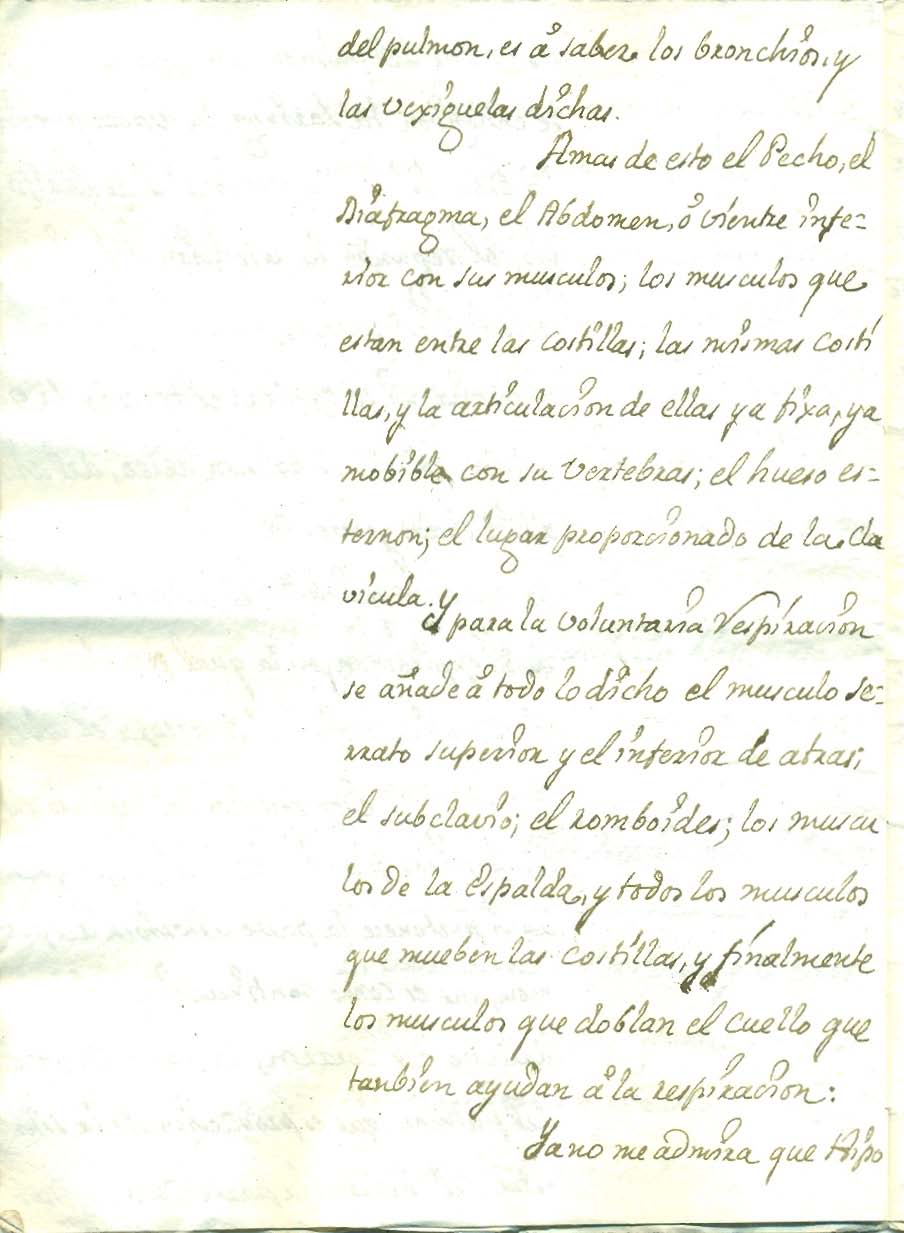 del pulmon, es â saber los bronchios, y
las vexiguelas dichas.
Amas de esto el Pecho, el
Diafragma, el Abdomen, ô vientre infe-
rior con sus musculos; los musculos que
estan entre las costillas; las mismas costi
llas, y la articulacion de ellas ya fixa, ya
mobible con su vertebras; el hueso es-
ternon; el lugar proporcionado de la cla
vicula. Y
para la voluntaria respiracion
se añade â todo lo dicho el musculo se-
rrato superior y el inferior de atras;
el subclavio; el romboides; los muscu
los de la Espalda, y todos los musculos
que mueben las costillas, y finalmente
los musculos que doblan el cuello que
tanbien ayudan â la respiracion:
Ya no me admira que Hipo